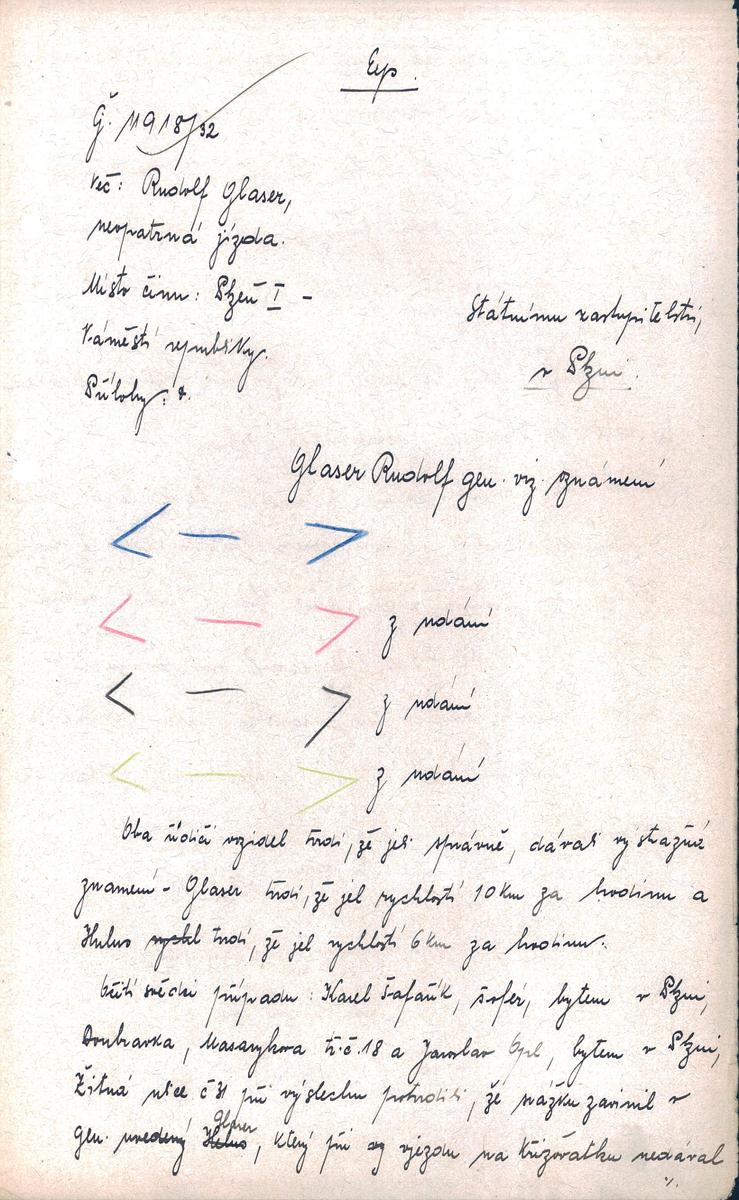 Exp.
Č. 11918/32
Věc: Rudolf Glaser,
neopatrná jízda.
Místo činu: Plzeň I –
Náměstí republiky.
Přílohy:
Státnímu zastupitelství,
v Plzni.
Glaser Rudolf gen. viz. známení
< — >
< — > z udání
< — > z udání
< — > z udání
Oba řidiči vozidel tvrdí, že jeli správně, dávali výstražná
znamení – Glaser tvrdí, že jel rychlostí 10 km za hodinu a
tvrdí, že jel rychlostí 6 km za hodinu.
Očití svědci případu: Karel Šafařík, šofér, bytem v Plzni,
Doubravka, Masarykova tř. č. 18 a Jaroslav Opl, bytem v Plzni,
Žitná ulice č 31 při výslechu potvrdili, že srážku zavinil v
gen. uvedený Glaser, který při vjezdu na křižovatku nedával
./.